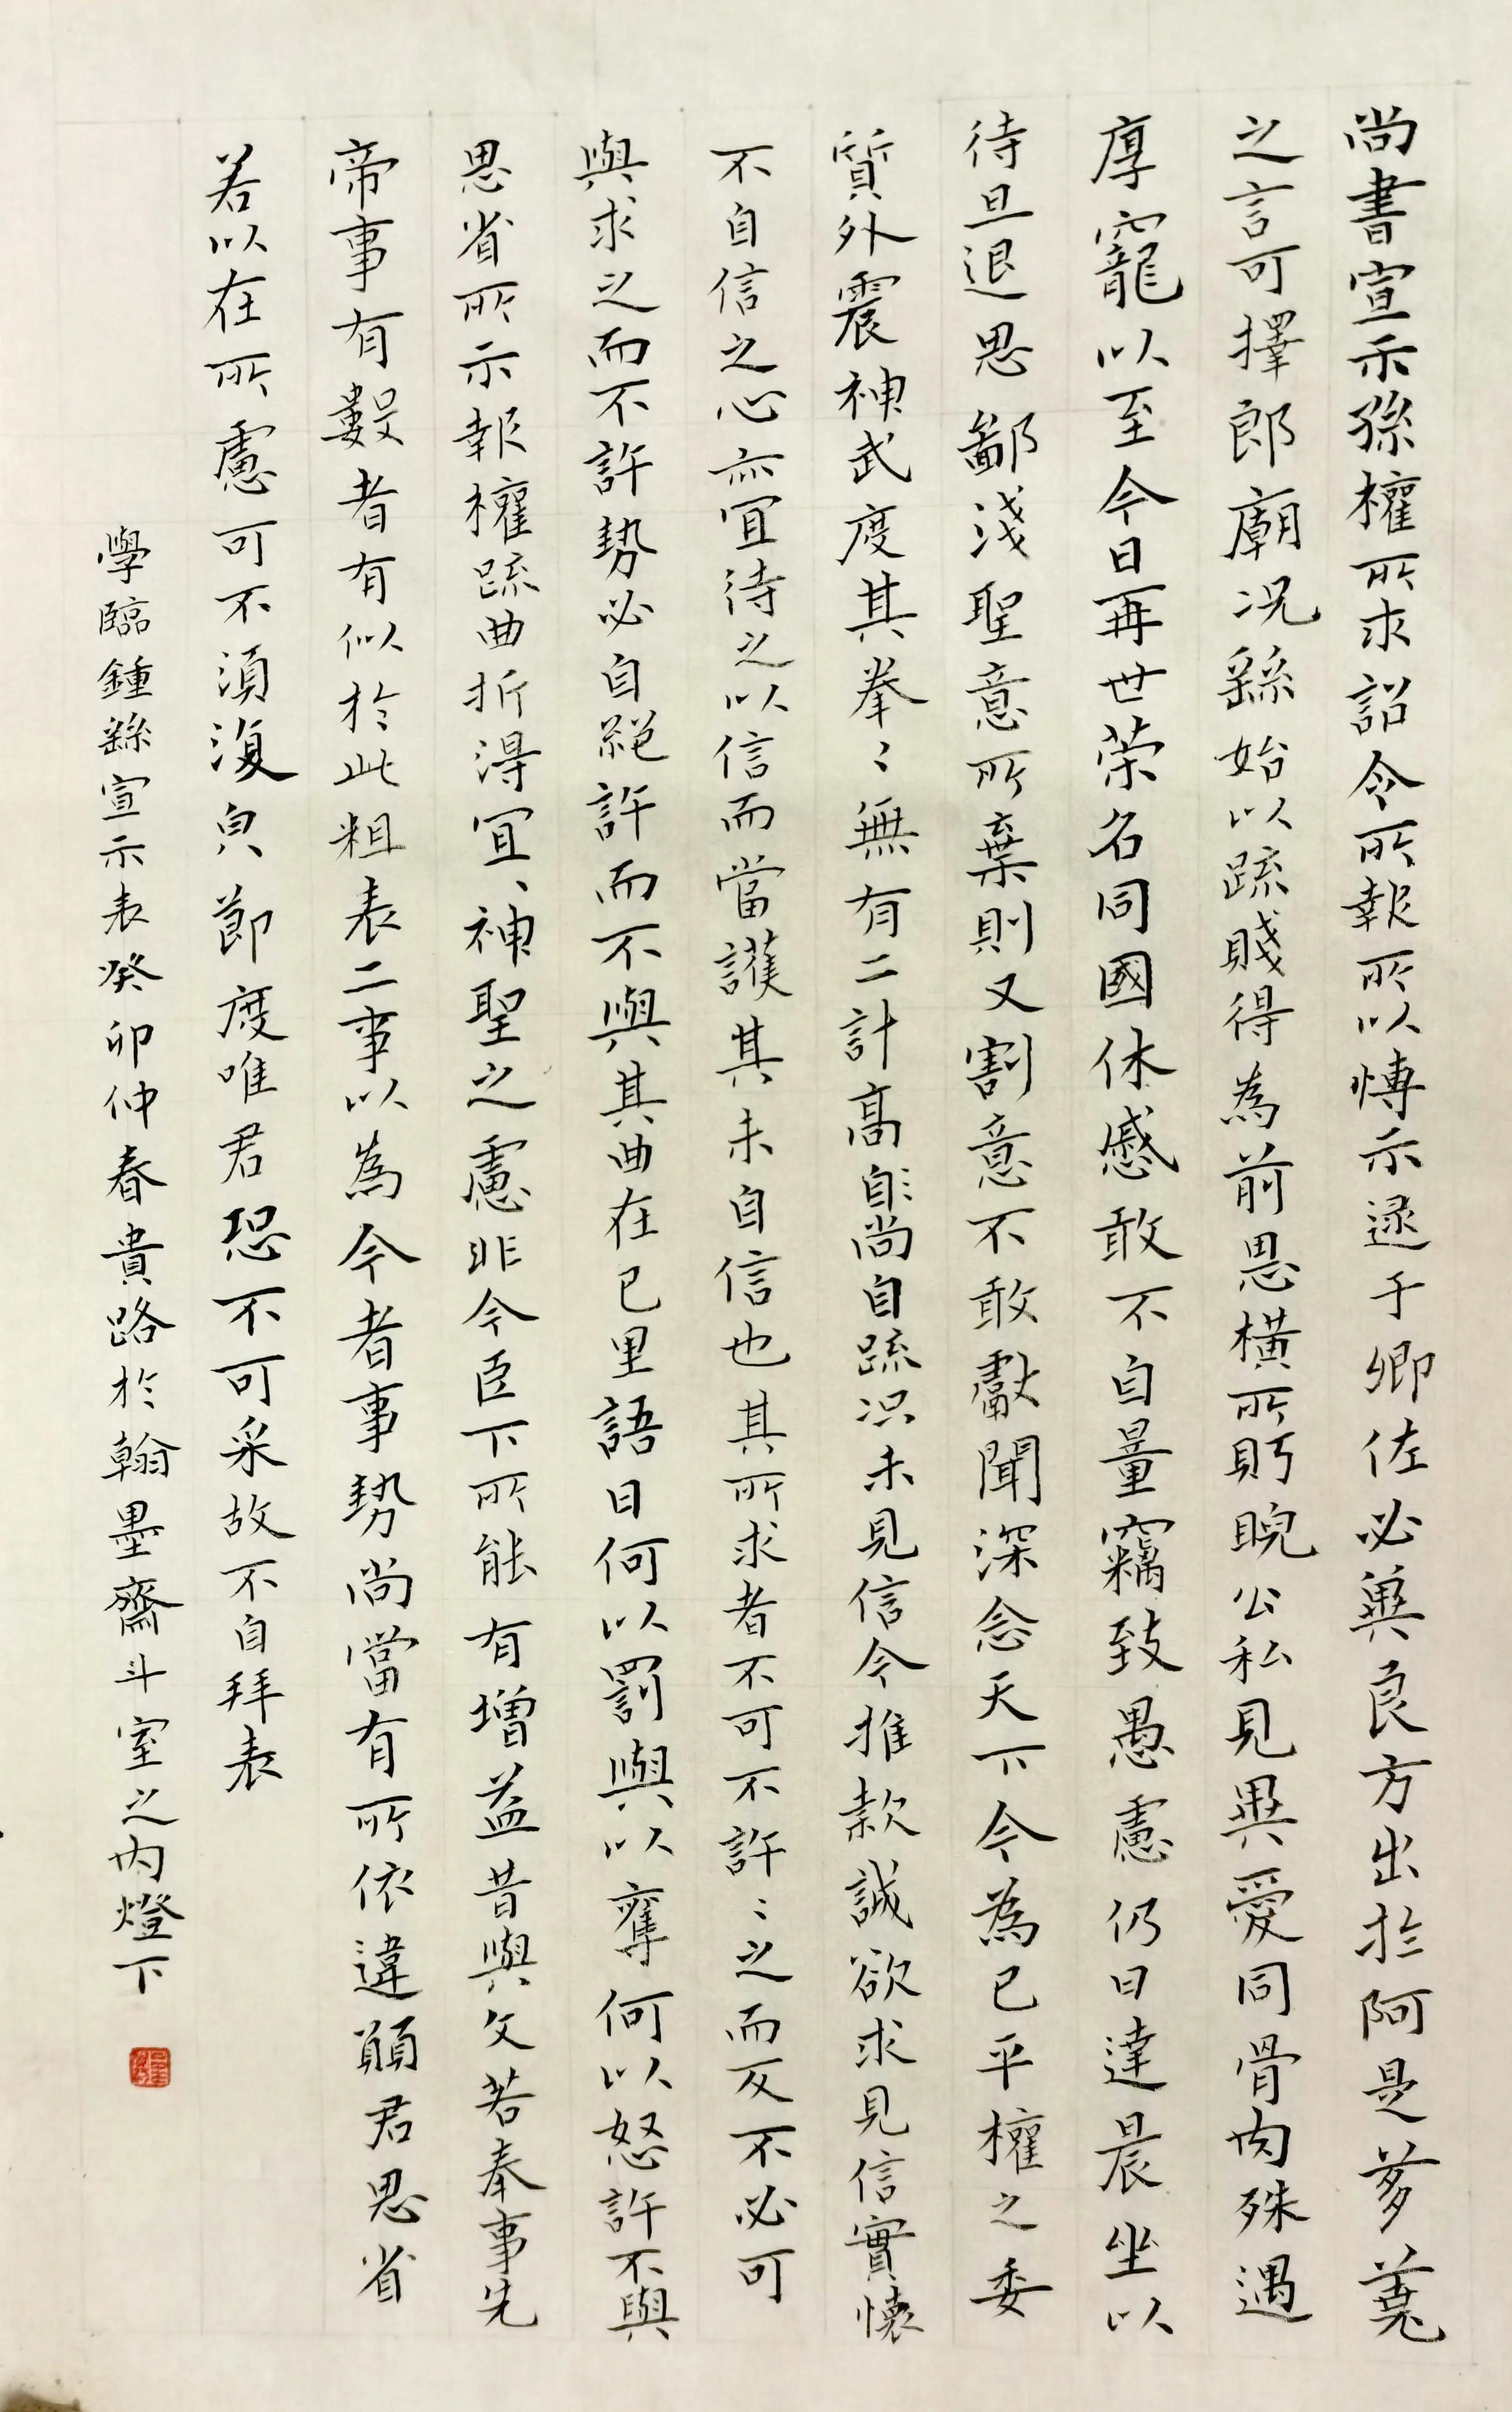 尚書宣示孫權所求詔令所報所以博示逮于卿佐必冀良方出於阿是芻蕘
之言可擇郎廟況繇始以疏賤得為前恩橫所眄睨公私見異愛同骨肉殊遇
厚寵以至今日再世榮名同國休慼敢不自量竊致愚慮仍日達晨坐以
待旦退思鄙淺聖意所棄則又割意不敢獻聞深念天下今為已平權之委
質外震神武度其拳〻無有二計高尚自疏況未見信今推款誠欲求見信實懷
不自信之心亦宜待之以信而當護其未自信也其所求者不可不許〻之而反不必可
與求之而不許勢必自絕許而不與其曲在己里語曰何以罰與以奪何以怒許不與
思省所示報權疏曲折得宜宜神聖之慮非今臣下所能有增益昔與文若奉事先
帝事有數者有似於此粗表二事以為今者事勢尚當有所依違願君思省
若以在所慮可不須復皃節度唯君恐不可采故不自拜表
學臨鍾繇宣示表癸卯仲春貴路於翰墨齋斗室之內燈下